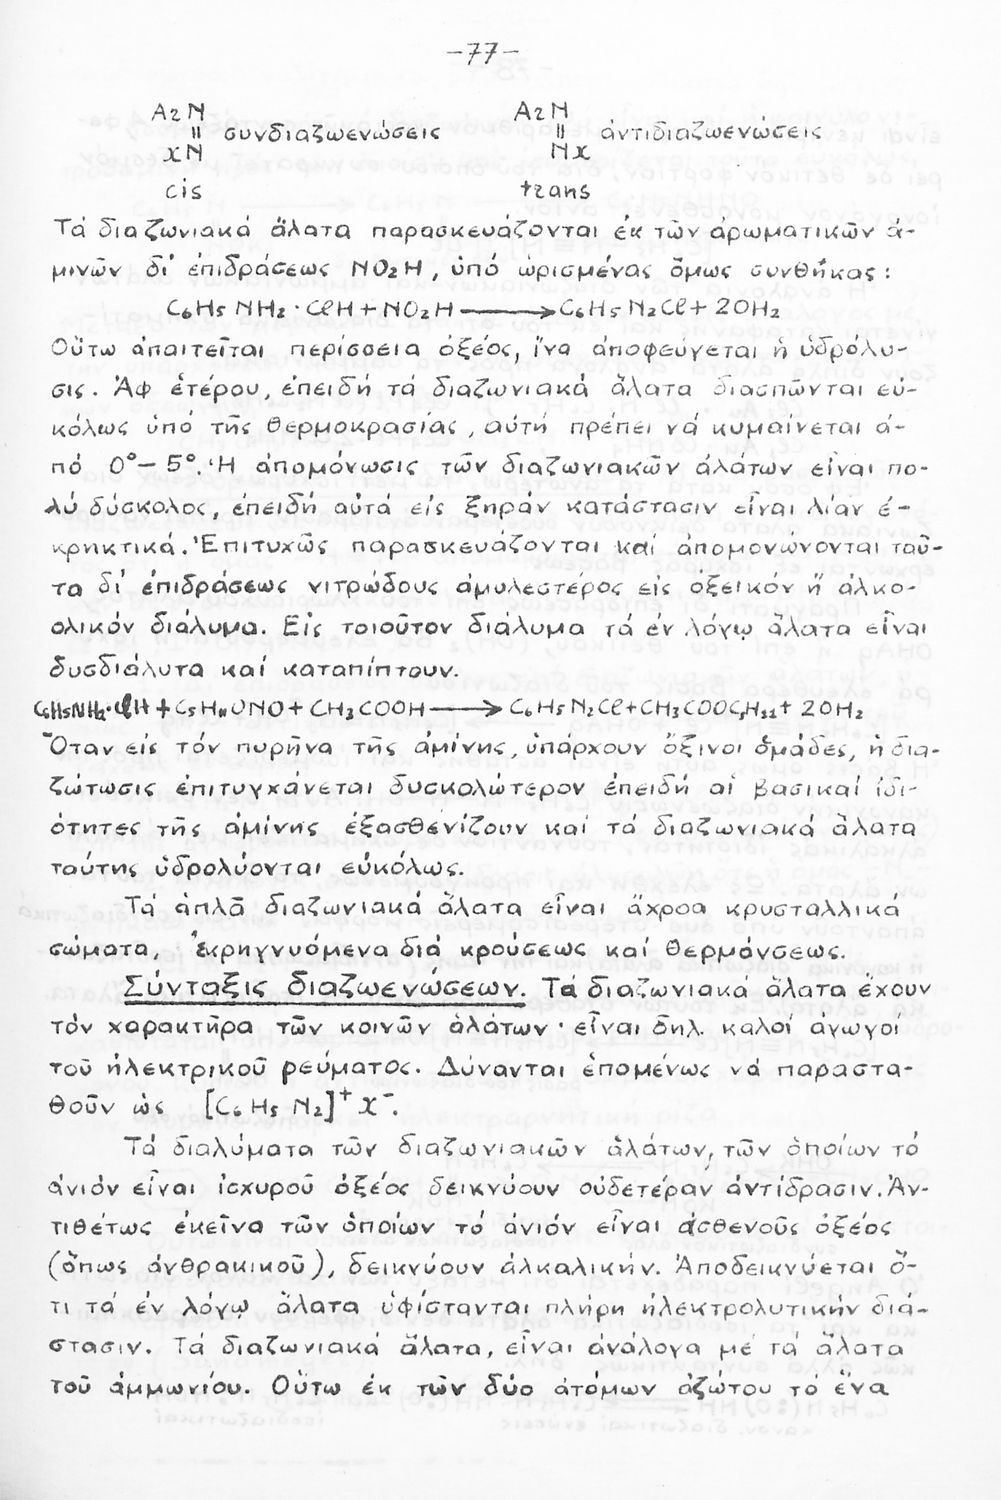 -77-
ArN ArN
॥ συνδιαζωενώσεις ॥ ἀντιδιαζωενώσεις
xN Nx
cis trans
Τά διαζωνιακά ἅλατα παρασκευάζονται ἐκ τῶν ἀρωματικῶν ἀ-
μινῶν δι' ἐπιδράσεως NO2H, ὑπό ὡρισμένας ὅμως συνθήκας:
C6H5NH2·ClH+NO2H⟶C6H5N2Cl+2OH2
Οὕτω ἀπαιτεῖται περίσσεια ὀξέος, ἵνα ἀποφεύγεται ἡ ὑδρόλυ-
σις. Ἀφ ἑτέρου, ἐπειδή τά διαζωνιακά ἅλατα διασπῶνται εὐ-
κόλως ὑπό τῆς θερμοκρασίας, αὐτή πρέπει νά κυμαίνεται ἀ-
πό 0°-5°. Ἡ ἀπομόνωσις τῶν διαζωνιακῶν ἁλάτων εἶναι πο-
λύ δύσκολος, ἐπειδή αὐτά εἰς ξηράν κατάστασιν εἶναι λίαν ἐ-
κρηκτικά. Ἐπιτυχῶς παρασκευάζονται καί ἀπομονώνονται ταῦ-
τα δι' ἐπιδράσεως νιτρώδους ἀμυλεστέρος εἰς ὀξεικόν ἤ ἀλκο-
ολικόν διάλυμα. Εἰς τοιοῦτον διάλυμα τά ἐν λόγῳ ἅλατα εἶναι
δυσδιάλυτα καί καταπίπτουν.
C6H5NH2·ClH+C5H11ONO+CH3COOH⟶C6H5N2Cl+CH3COOC5H11+2OH2
Ὅταν εἰς τόν πυρῆνα τῆς ἀμίνης, ὑπάρχουν ὄξινοι ὁμάδες, ἡ δια-
ζώτωσις ἐπιτυγχάνεται δυσκολώτερον ἐπειδή αἱ βασικαί ἰδι-
ότητες τῆς ἀμίνης ἐξασθενίζουν καί τά διαζωνιακά ἅλατα
ταύτης ὑδρολύονται εὐκόλως.
Τά ἁπλᾶ διαζωνιακά ἅλατα εἶναι ἄχροα κρυσταλλικά
σώματα, ἐκρηγνυόμενα διά κρούσεως καί θερμάνσεως.
Σύνταξις διαζωενώσεων. Τα διαζωνιακά ἅλατα ἔχουν
τόν χαρακτῆρα τῶν κοινῶν ἁλάτων· εἶναι δηλ. καλοί ἀγωγοί
τοῦ ἠλεκτρικοῦ ρεύματος. Δύνανται ἑπομένως νά παραστα-
θοῦν ὡς [C6H5N2]+X-.
Τά διαλύματα τῶν διαζωνιακῶν ἁλάτων, τῶν ὁποίων τό
ἀνιόν εἶναι ἰσχυροῦ ὀξέος δεικνύουν οὐδετέραν ἀντίδρασιν. Ἀν-
τιθέτως ἐκεῖνα τῶν ὁποίων τό ἀνιόν εἶναι ἀσθενοῦς ὀξέος
(ὅπως ἀνθρακικοῦ), δεικνύουν ἀλκαλικήν. Ἀποδεικνύεται ὅ-
τι τά ἐν λόγῳ ἅλατα ὑφίστανται πλήρη ἠλεκτρολυτικήν διά-
στασιν. Τά διαζωνιακά ἅλατα, εἶναι ἀνάλογα μέ τά ἅλατα
τοῦ ἀμμωνίου. Οὕτω ἐκ τῶν δύο ἀτόμων ἀζώτου τό ἕνα